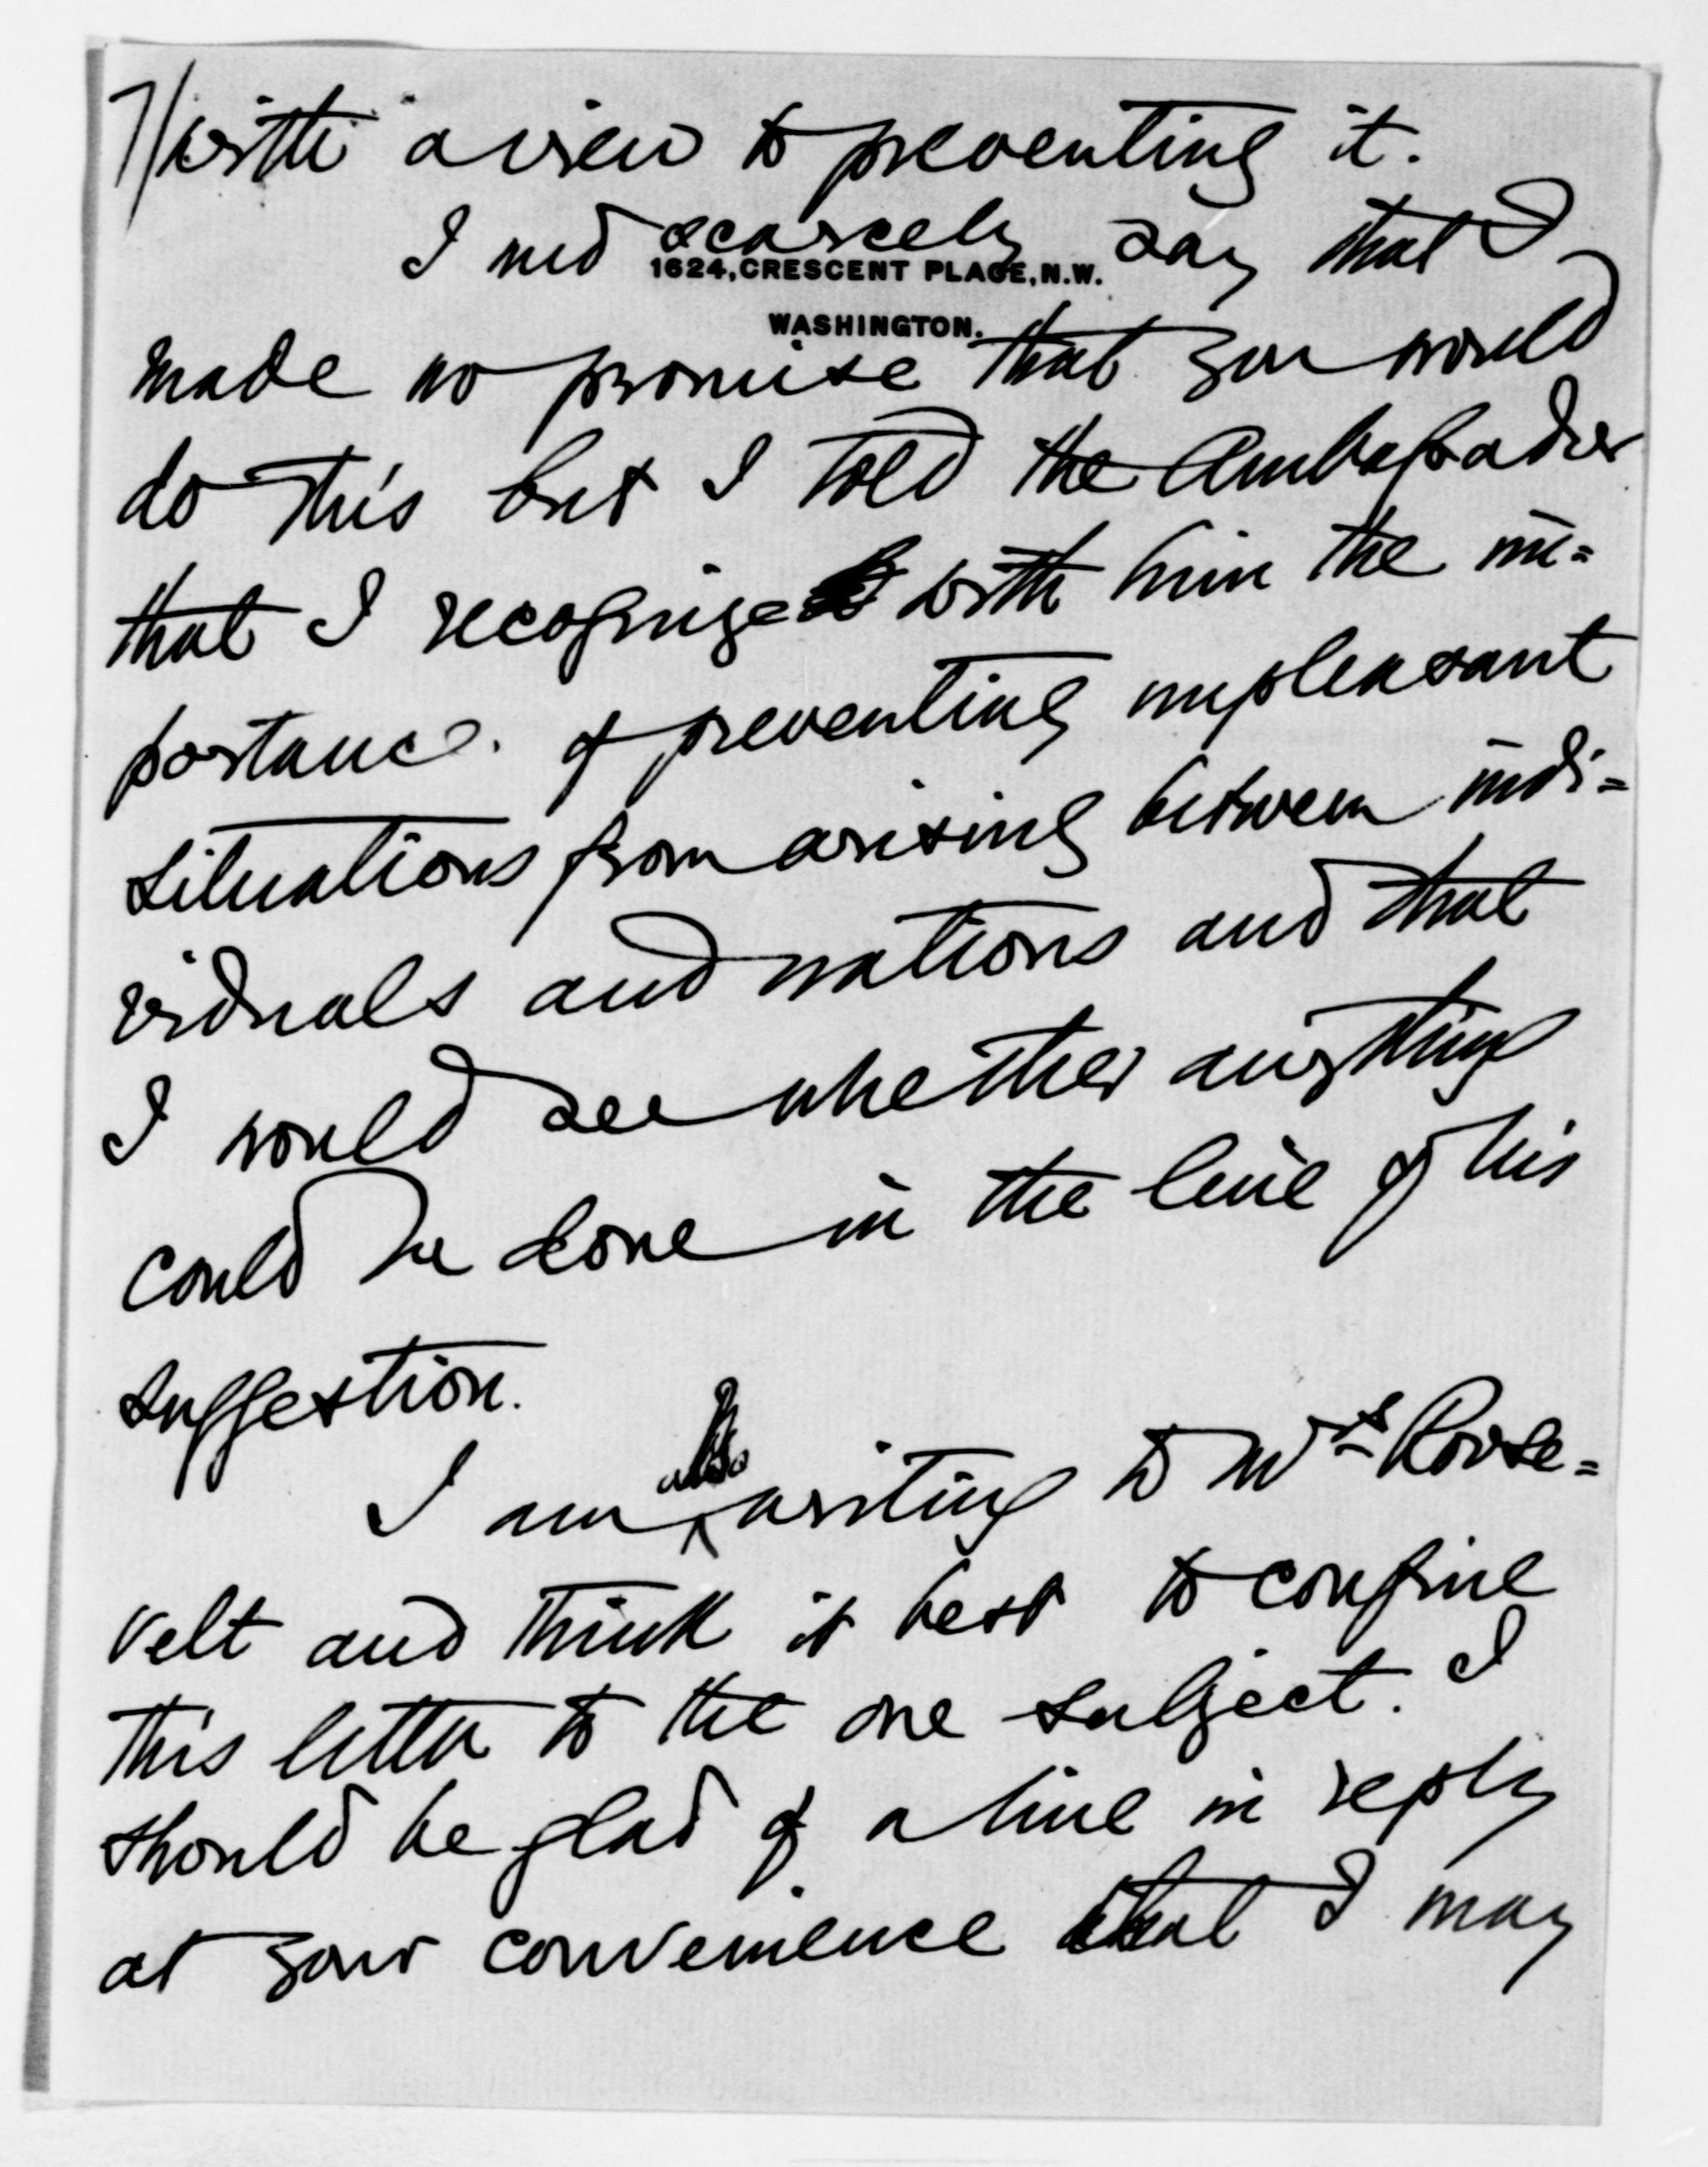 7/ with a view to preventing it.
I need scarcely say that I
1624, CRESCENT PLACE, N.W.
WASHINGTON.
made no promise that you would
do this but I told the Ambassador
that I recognize with him the im=
portance of preventing unpleasant
situations from arising between indi=
viduals and nations and that
I would see whether anything
could be done in the line of his
suggestion.
I am also writing to Mrs Roose=
velt and think it best to confine
this letter to the one subject. I
should be glad of a line in reply
at your convenience that I may